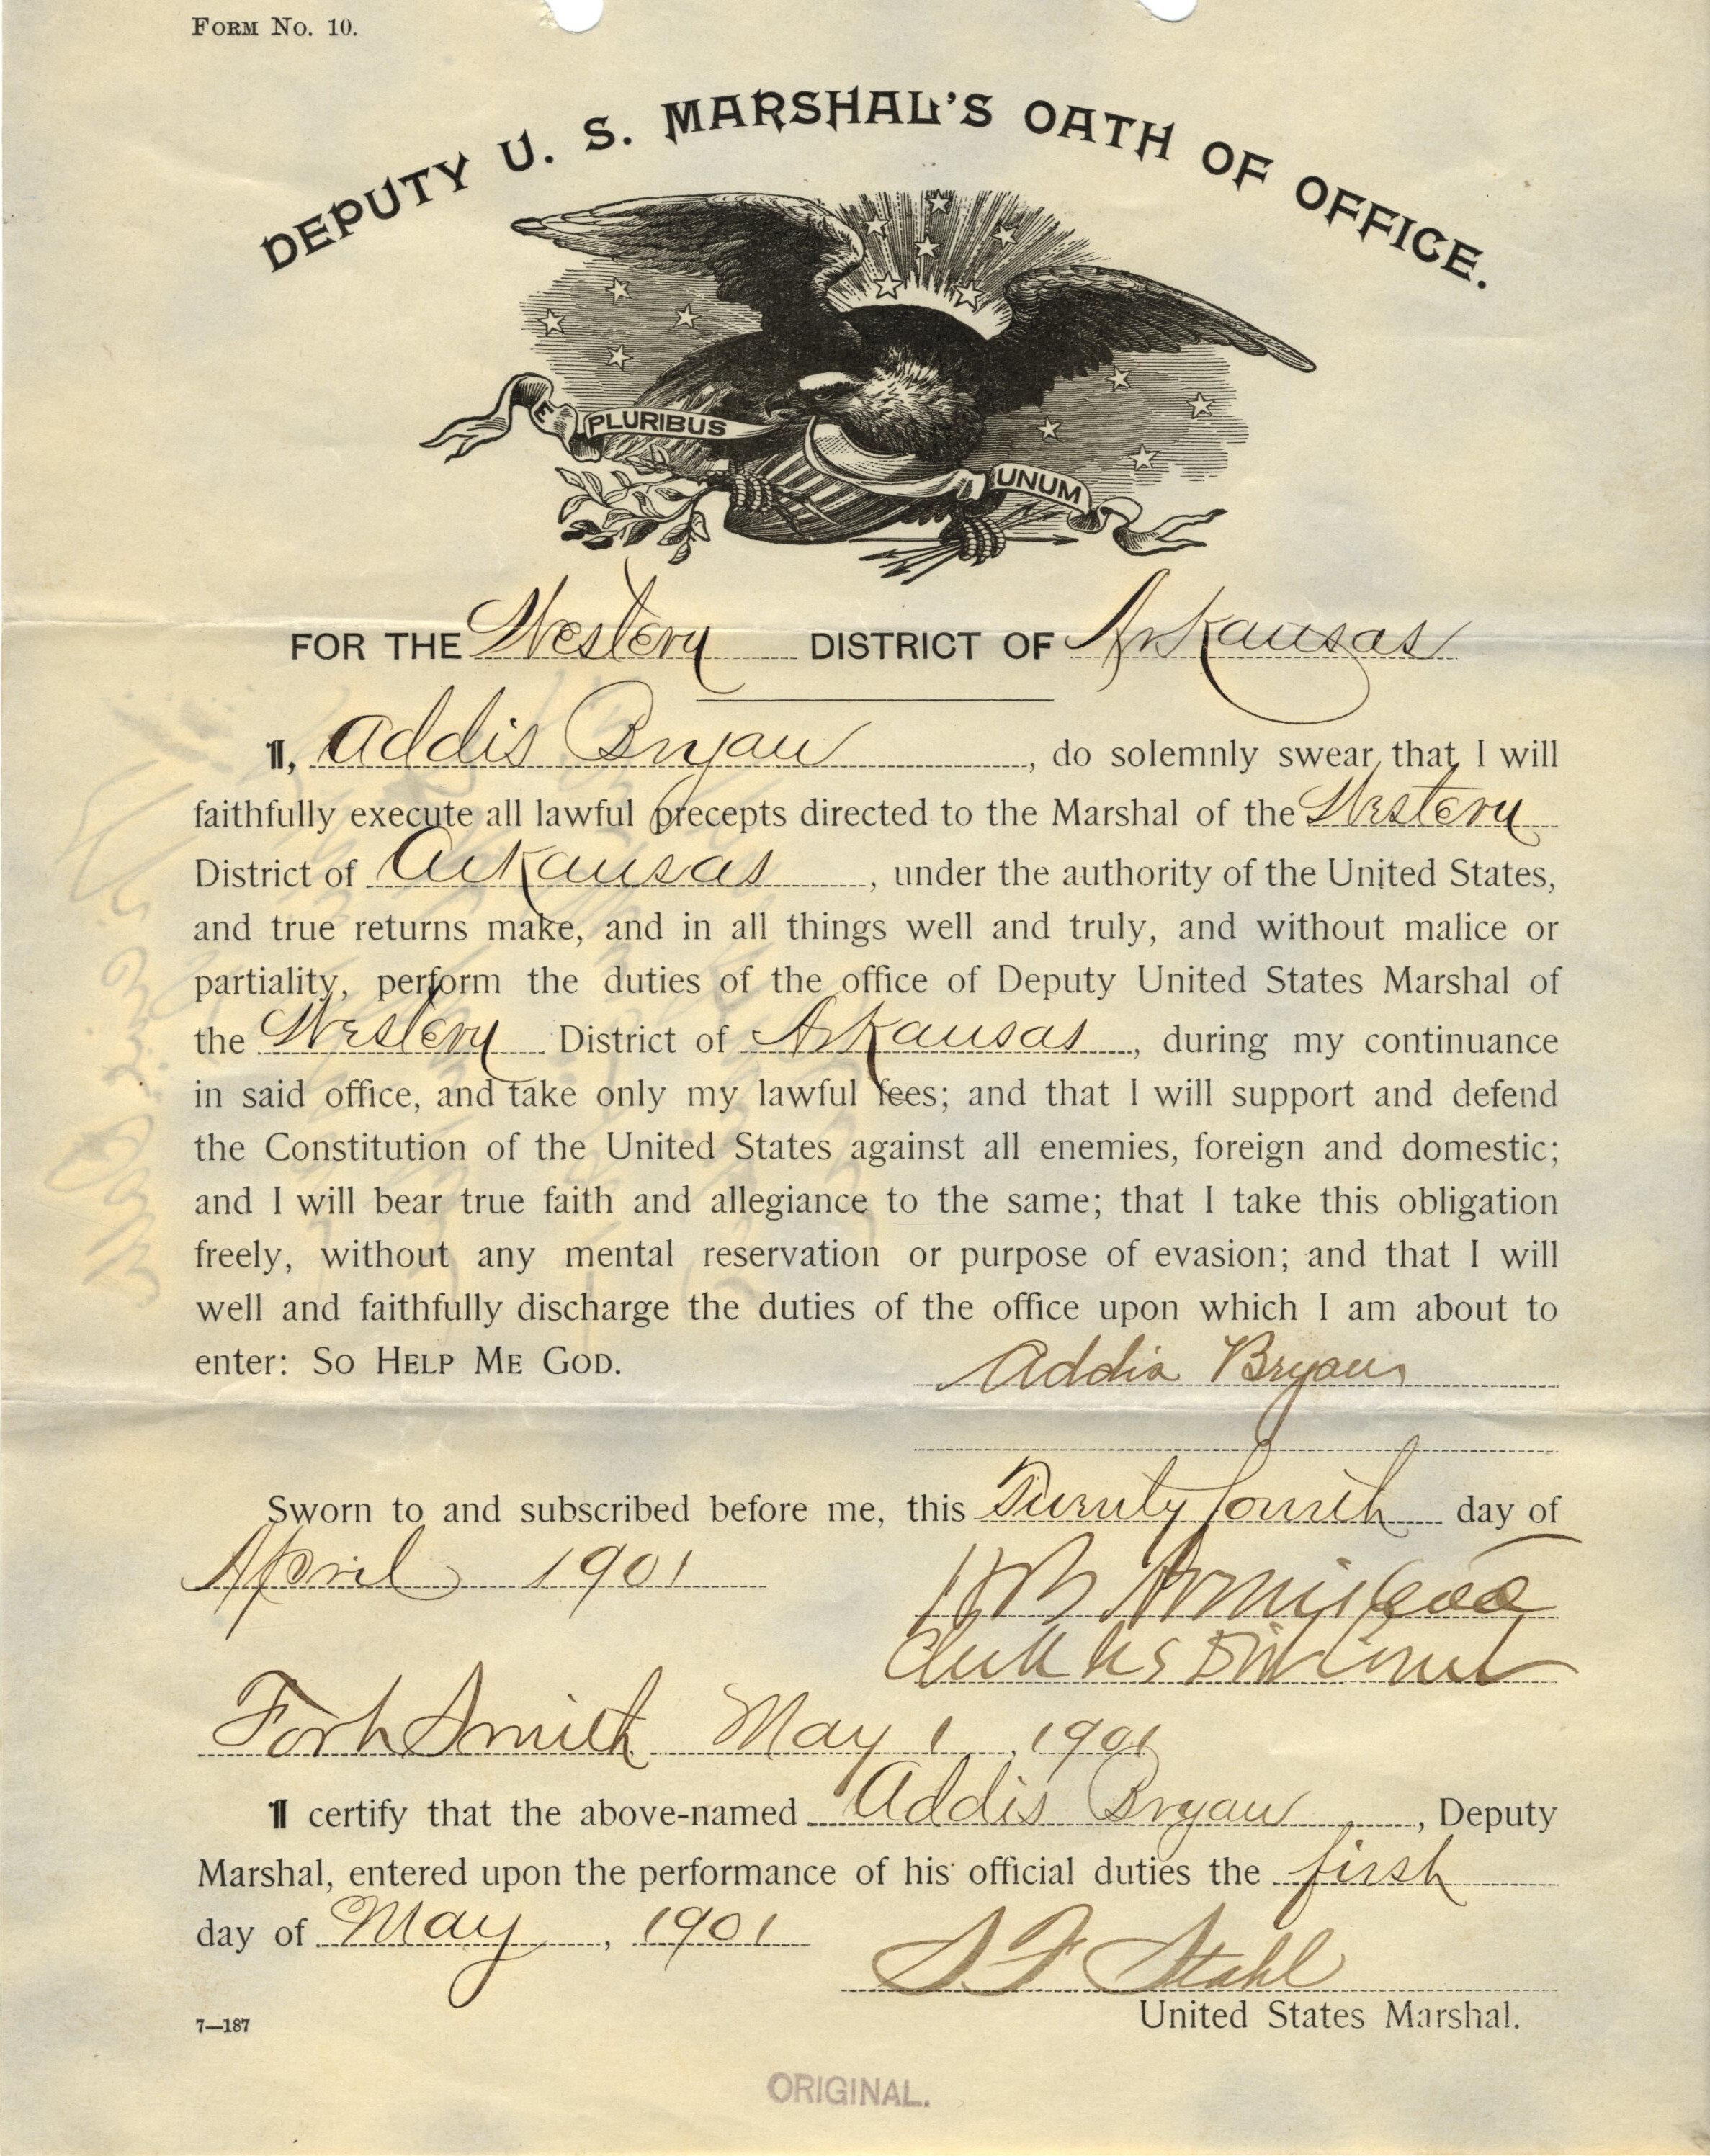 FORM No. 10.
DEPUTY U. S. MARSHAL'S OATH OF OFFICE.
E PLURIBUS UNUM
FOR THE Western DISTRICT OF Arkansas
I, Addis Bryan, do solemnly swear that I will
faithfully execute all lawful precepts directed to the Marshal of the Western
District of Arkansas, under the authority of the United States,
and true returns make, and in all things well and truly, and without malice or
partiality, perform the duties of the office of Deputy United States Marshal of
the Western District of Arkansas, during my continuance
in said office, and take only my lawful fees; and that I will support and defend
the Constitution of the United States against all enemies, foreign and domestic;
and I will bear true faith and allegiance to the same; that I take this obligation
freely, without any mental reservation or purpose of evasion; and that I will
well and faithfully discharge the duties of the office upon which I am about to
enter: SO HELP ME GOD.
Addis Bryan
Sworn to and subscribed before me, this Twenty fourth day of
April 1901
Armistead
Clerk US Dist Court
Fort Smith May 1, 1901
I certify that the above-named Addis Bryan, Deputy
Marshal, entered upon the performance of his official duties the first
day of May, 1901
S. F. Stahl
United States Marshal.
7—187
ORIGINAL.